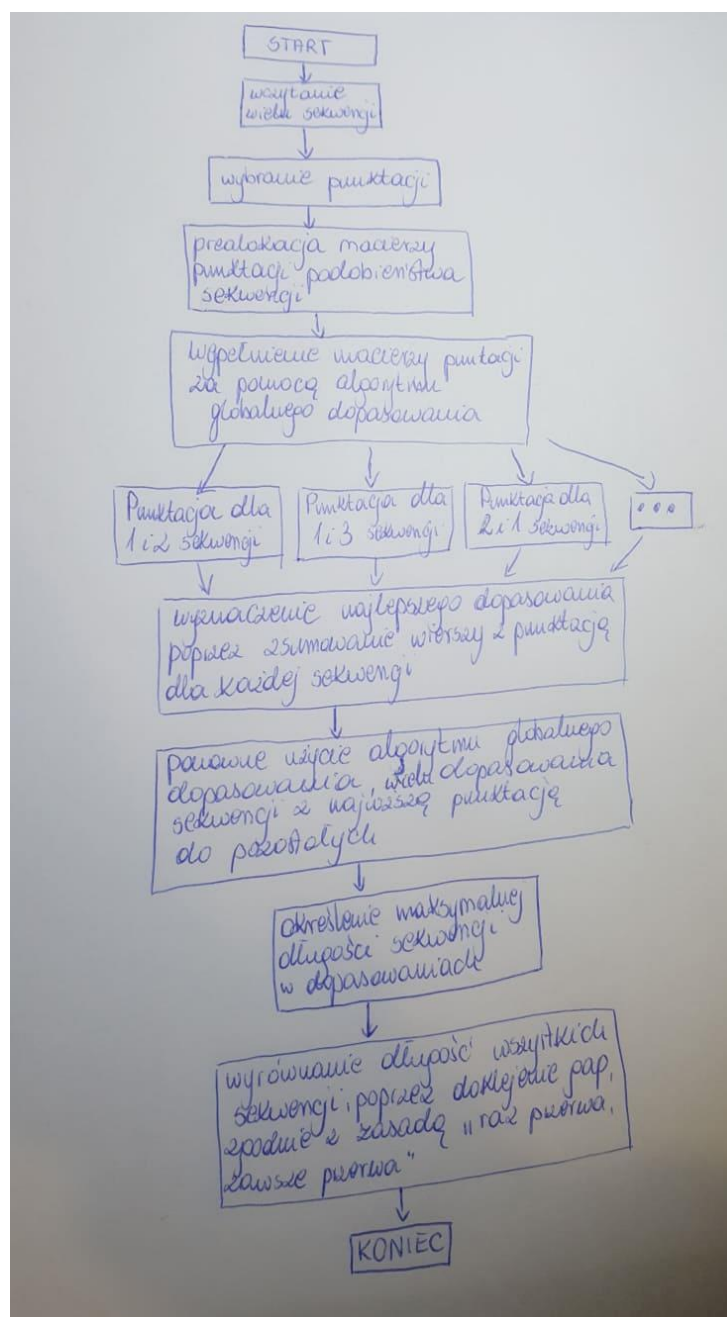 START
wczytanie
wielu sekwencji
wybranie punktacji
prealokacja macierzy
punktacji podobieństwa
sekwencji
Wypełnienie macierzy puntacji
za pomocą algorytmu
globalnego dopasowania
Punktacja dla
1 i 2 sekwencji
Punktacja dla
1 i 3 sekwencji
Punktacja dla
2 i 1 sekwencji
...
wyznaczenie najlepszego dopasowania
poprzez zsumowanie wierszy z punktacją
dla każdej sekwencji
ponowne użycie algorytmu globalnego
dopasowania, dopasowania
sekwencji z najwższą punktacją
do pozostałych
określenie maksymalnej
długości sekwencji
w dopasowaniach
wyrównanie długość wszystkich
sekwencji, poprzez doklejenie gap,
zgodnie z zasadą „raz przerwa,
zawsze przerwa"
KONIEC